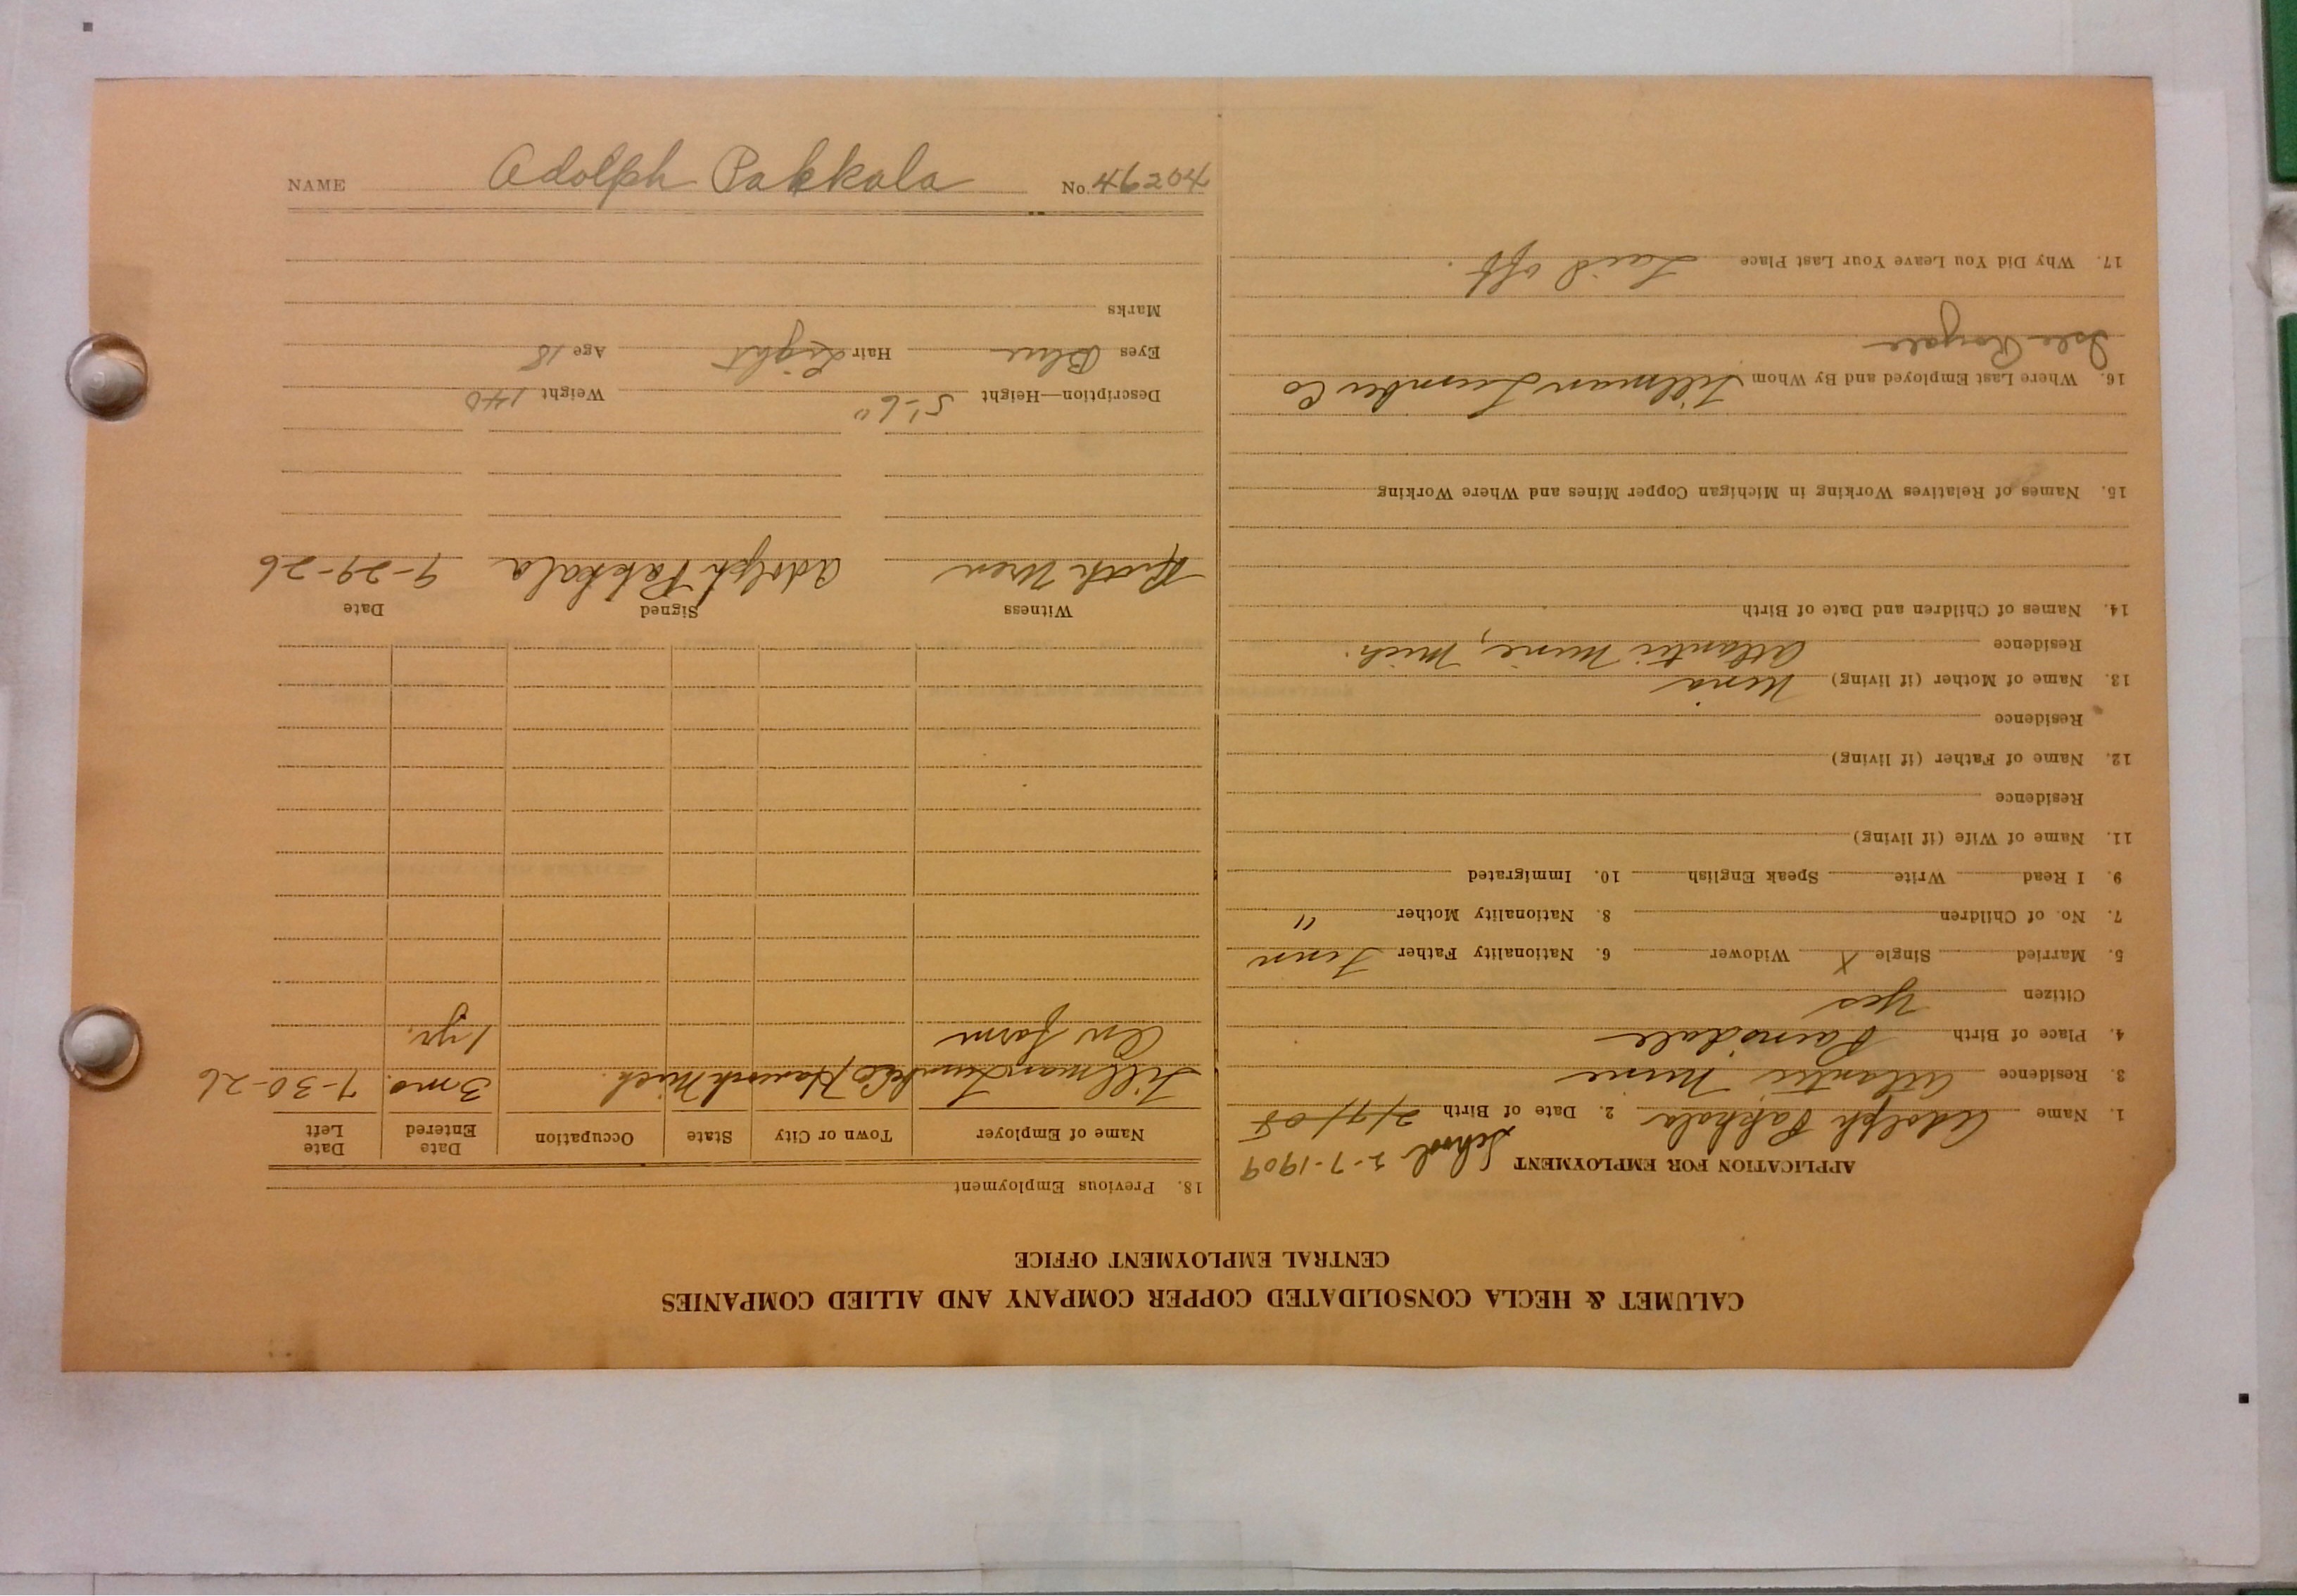 CALUMET & HECLA CONSOLIDATED COPPER COMPANY AND ALLIED COMPANIES
CENTRAL EMPLOYMENT OFFICE
APPLICATION FOR EMPLOYMENT School 2-7-1909
1. Name Adolph Pakkala 2. Date of Birth 2/9/08
3. Residence Atlantic Mine
4. Place of Birth Painsdale
Citizen Yes
5. Married Single X Widower 6. Nationality Father Finn
7. No. of Children 8. Nationality Mother "
9. I Read Write Speak English 10. Immigrated
11. Name of Wife (if living)
Residence
12. Name of Father (if living)
Residence
13. Name of Mother (if living)
Residence Atlantic Mine, Mich.
14. Names of Children and Date of Birth
15. Names of Relatives Working in Michigan Copper Mines and Where Working
16. Where Last Employed and By Whom Tillman Lumber Co
Isle Royale
17. Why Did You Leave Your Last Place Laid off.
18. Previous Employment
Name of Employer Town or City State Occupation Date Entered Date Left
Tillman Lumber Co Hancock Mich. 3 mo. 7-30-26
On farm 1 yr.
Witness Signed Date
Adolph Pakkala 9-29-26
Description—Height 5'-6" Weight 140
Eyes Blue Hair Light Age 18
Marks
NAME Adolph Pakkala No. 46204